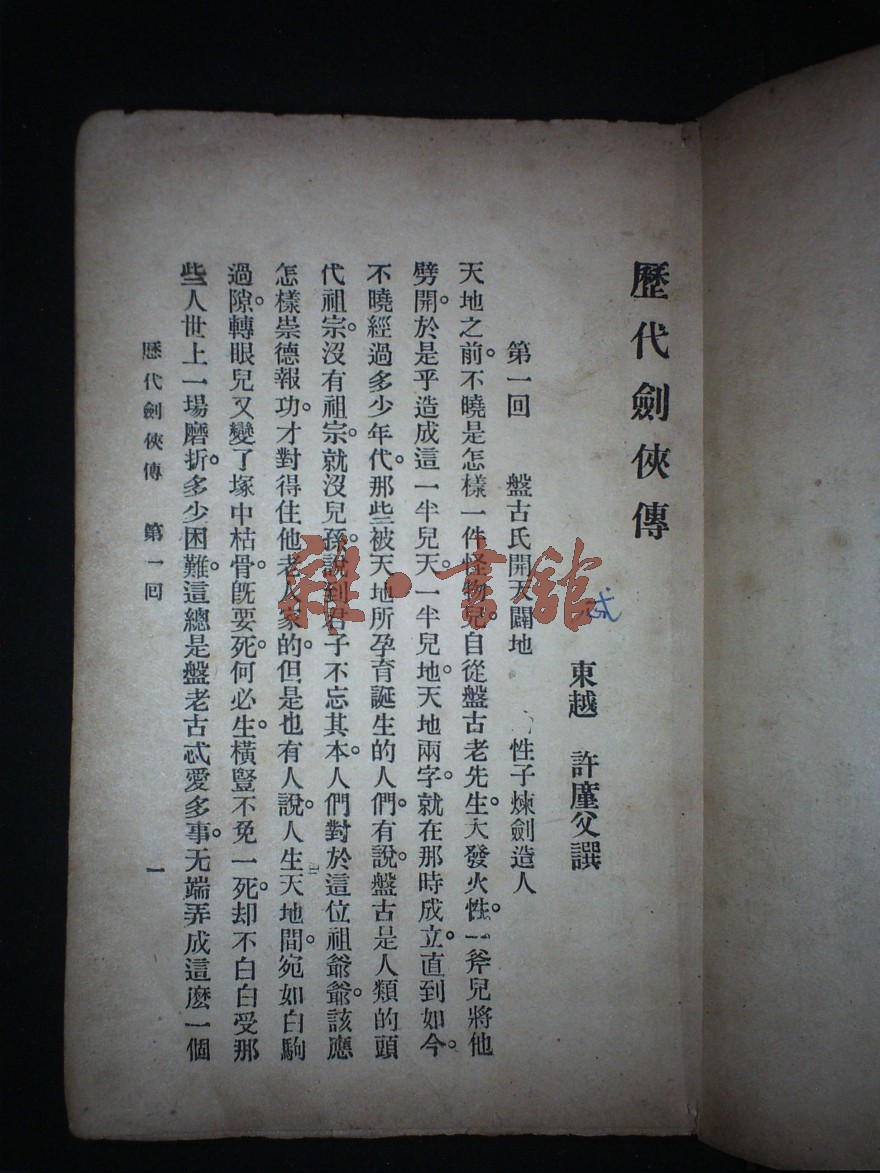 歷代劍俠傳
東越 許廑父譔
第一回 盤古氏開天闢地 性子煉劍造人
天地之前。不曉是怎樣一件怪物兒。自從盤古老先生。大發火性。一斧兒將他
劈開。於是乎造成這一半兒天。一半兒地。天地兩字。就在那時成立。直到如今。
不曉經過多少年代。那些被天地所孕育誕生的人們。有說。盤古是人類的頭
代祖宗。沒有祖宗。就沒兒孫。說到君子不忘其本。人們對於這位祖爺爺。該應
怎樣崇德報功。才對得住他老人家的。但是也有人說。人生天地間。宛如白駒
過隙。轉眼兒又變了塚中枯骨。旣要死。何必生。橫豎不免一死。却不白白受那
些人世上一場磨折。多少困難。這總是盤老古忒愛多事。无端弄成這麽一個
歷代劍俠傳 第一回
一
雜·書館